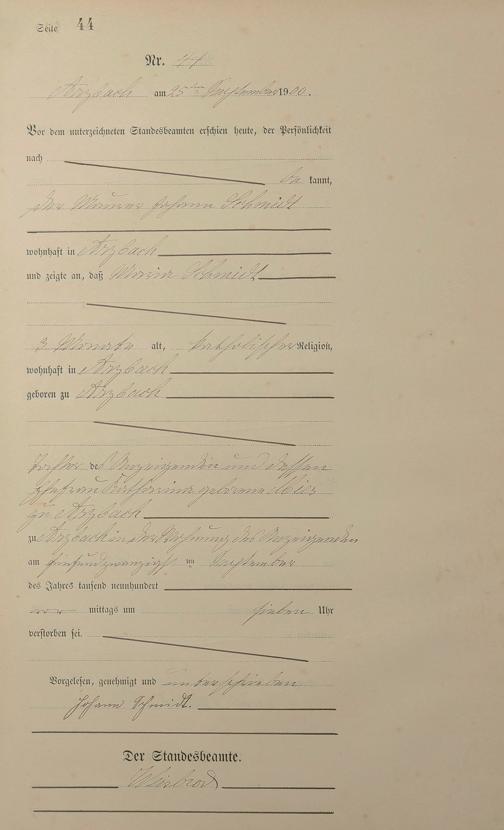 Seite 44
Nr. 44
Arzbach am 25ten September 1900.
Vor dem unterzeichneten Standesbeamten erschien heute, der Persönlichkeit
nach
be kannt,
der Maurer Johann Schmidt
wohnhaft in Arzbach
und zeigte an, daß Maria Schmidt
3 Monate alt, katholischer Religion,
wohnhaft in Arzbach
geboren zu Arzbach
Tochter des Anzeigenden und dessen
Ehefrau Katharina geborene
zu Arzbach
zu Arzbach in der Wohnung des Anzeigenden
am fünfundzwanzigsten September
des Jahres tausend neunhundert
vor mittags um sieben Uhr
verstorben sei.
Vorgelesen, genehmigt und unterschrieben
Johann Schmidt.
Der Standesbeamte.